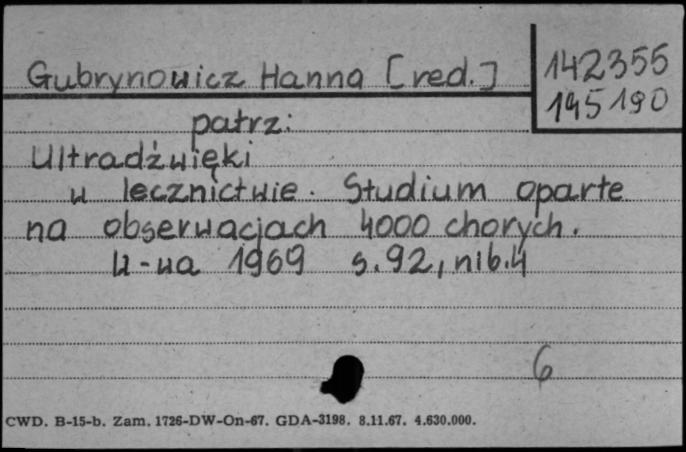 Gubrynowicz Hanna [red.]
142355
145190
patrz:
Ultradźwięki
w lecznictwie. Studium oparte
na obserwacjach 4000 chorych.
W-wa 1969 s.92, nlb.4
6
CWD. B-15-b. Zam. 1726-DW-On-67. GDA-3198. 8.11.67. 4.630.000.